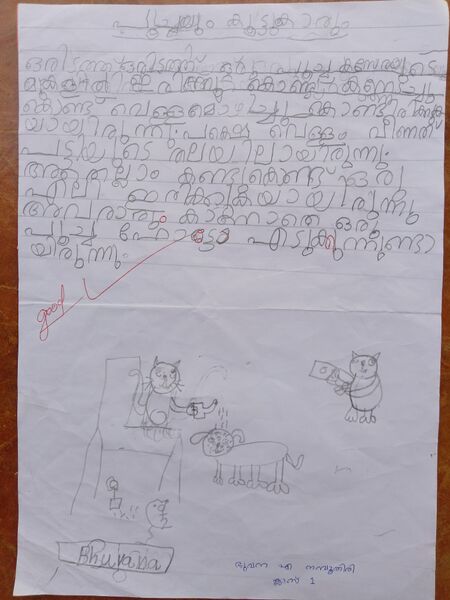 പൂച്ചയും കൂട്ടുകാരും
ഒരിടത്ത് ഒരിടത്ത് ഒരു പൂച്ച കസേരയുടെ
മുകളിൽ ഇരുന്ന് കൊണ്ട് കണ്ണടച്ചു
കൊണ്ട് വെള്ളമൊഴിച്ചു കൊണ്ടിരിക്കുക
യായിരുന്നു. പക്ഷെ വെള്ളം വീണത്
പട്ടിയുടെ തലയിലായിരുന്നു.
അതെല്ലാം കണ്ടുകൊണ്ട് ഒരു
എലി ഇരിക്കുകയായിരുന്നു
അവരാരും കാണാതെ ഒരു
പൂച്ച ഫോട്ടോ എടുക്കുന്നുണ്ടാ
യിരുന്നു.
good
Bhuvana
ഭുവന എ നമ്പൂതിരി
ക്ലാസ് 1